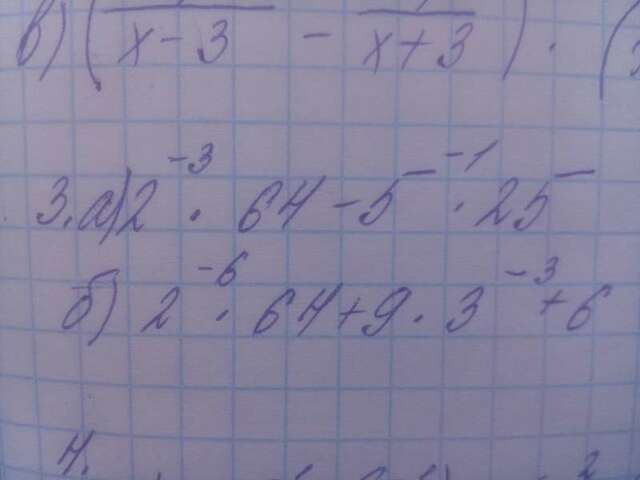 в) ( x-3 - x+3 ) · (
3. а) 2⁻³ · 64 - 5⁻¹ · 25
б) 2⁻⁶ · 64 + 9 · 3⁻³ + 6
4.